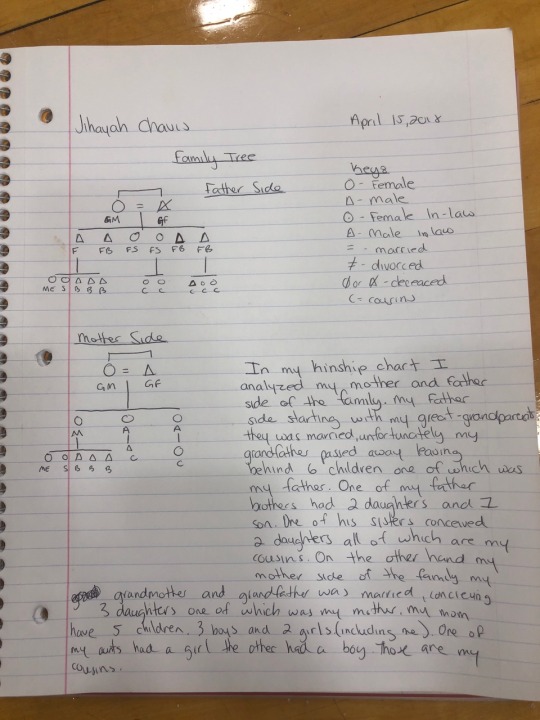 Jihayah Chavis
April 15, 2018
Family Tree
Father Side
Keys
O - Female
Δ - male
O - Female In-law
Δ - Male in law
= - married
≠ - divorced
Ø or Δ̸ - deceaced
C = cousins
O = Δ̸
GM GF
Δ Δ O O Δ Δ
F FB FS FS FB FB
O O Δ Δ Δ O O Δ O O
Me S B B B C C C C C
Mother Side
O = Δ
GM GF
O O O
M A A
O O Δ Δ Δ Δ O
Me S B B B C C
In my kinship chart I
analyzed my mother and father
side of the family. my Father
side starting with my great-grandparents
they was married, unfortunately my
grandfather passed away leaving
behind 6 children one of which was
my father. One of my father
brothers had 2 daughters and 1
son. One of his sisters conceived
2 daughters all of which are my
cousins. On the other hand my
mother side of the family my
grandmother and grandfather was married, concieving
3 daughters one of which was my mother. my mom
have 5 children. 3 boys and 2 girls (including me). One of
my aunts had a girl the other had a boy those are my
cousins.